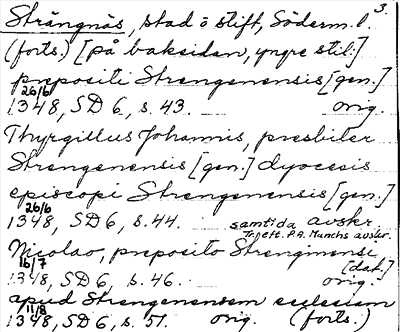 Strängnäs, stad o stift, Söderm. l. 3.
(forts.) [på baksidan, yngre stil:]
prepositi Strengenensis [gen.]
26/6
1348, SD 6, s. 43. orig.
Thyrgillus Johannis, presbiter
Strengenensis [gen.] dyocesis
episcopi Strengenensis [gen.]
26/6
1348, SD 6, s. 44. samtida avskr.
Tr. eft. P. A. Munchs avskr.
Nicolao, preposito Strenginensi
16/7 [dat.]
1348, SD 6, s. 46. orig.
apud Strengenensem ecclesiam
11/8
1348, SD 6, s. 51. orig. (forts.)